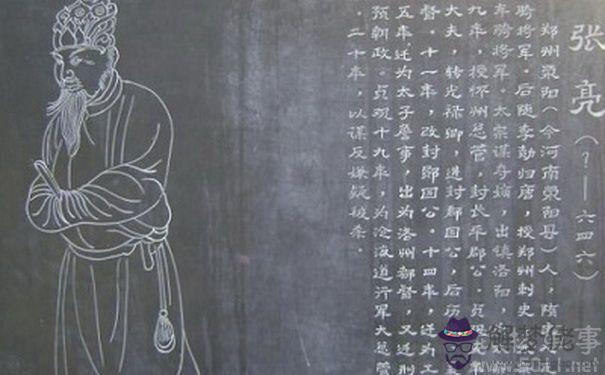 张亮(?—六四六)
郑州荥阳(今河南荥阳县)人,隋
骑将军。后随李勣归唐,授郑州刺史
车骑将军。太宗谋夺嫡,出镇洛阳,
九年,授怀州总管,封长平郡公。贞观
大夫,转光禄卿,进封鄅国公,后历
督。十一年,改封郧国公。十四年,迁为工
五年,迁为太子詹事,出为洛州都督,又迁刑
预朝政。贞观十九年,为沧海道行军大总管
。二十年,以谋反嫌疑被杀。
解梦佬事
www.5011.net